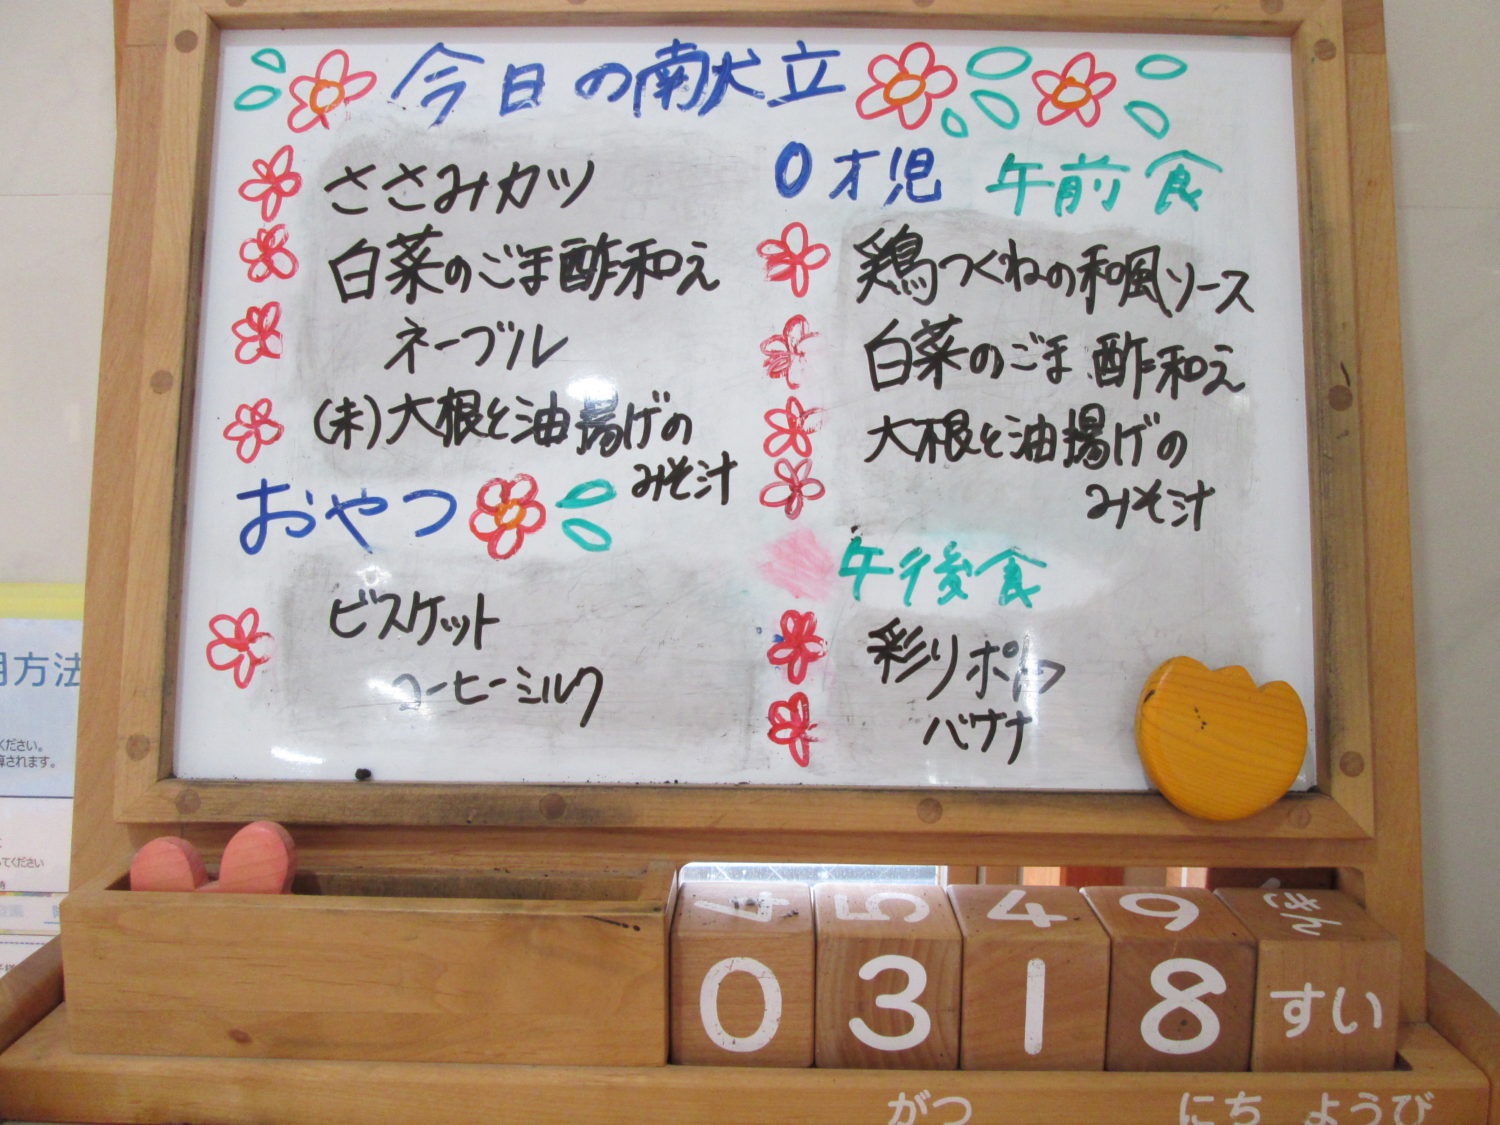 今日の献立
ささみカツ
白菜のごま酢和え
ネーブル
(未)大根と油揚げの
みそ汁
おやつ
ビスケット
コーヒーミルク
0才児 午前食
鶏つくねの和風ソース
白菜のごま酢和え
大根と油揚げの
みそ汁
午後食
彩りポトフ
バナナ
用方法
ください。
算されます。
てください
4 5 4 9 きん
0 3 1 8 すい
がつ にち ようび